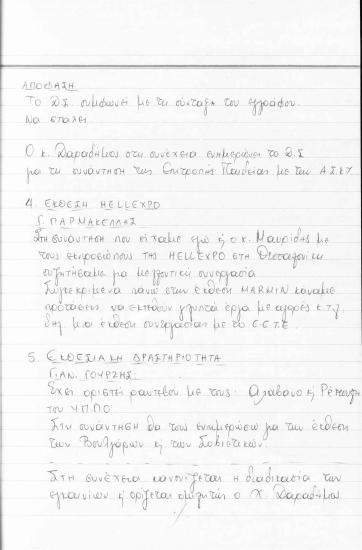 ΑΠΟΦΑΣΗ
Το Δ.Σ. συμφωνεί με τη σύνταξη του εγγράφου.
Να σταλεί
Ο κ. Δαραδήμος στη συνέχεια ενημερώνει το Δ.Σ
για τη συνάντηση της Επιτροπής Παιδείας με την Α.Σ.Κ.Τ.
4. ΕΚΘΕΣΗ HELLEXPO
Γ. ΠΑΡΜΑΚΕΛΛΗΣ
Στη συνάντηση που είχαμε εγώ ή ο κ. Μαυρίδης με
τους εκπροσώπους της HELLEXPO στη Θεσσαλονίκη
συζητήσαμε για μελλοντική συνεργασία
Συγκεκριμένα πάνω στην έκθεση MARMIN κάναμε
προτάσεις να εκτεθούν γλυπτά έργα με αγορές κ.τ.λ.
δηλ. μια έκθεση συνεργασίας με το Ε.Ε.Τ.Ε.
5. ΕΚΘΕΣΙΑΚΗ ΔΡΑΣΤΗΡΙΟΤΗΤΑ
ΓΙΑΝ. ΓΟΥΡΖΗΣ:
Έχει οριστεί ραντεβού με τους: Αλαβάνο ή
του ΥΠ.ΠΟ.
Στη συνάντηση θα τους ενημερώσω για την έκθεση
των Βουλγάρων ή των Σοβιετικών.
Στη συνέχεια κανονίζεται η διαδικασία των
εγκαινίων ή ορίζεται ομιλητής ο Χ. Δαραδήμος